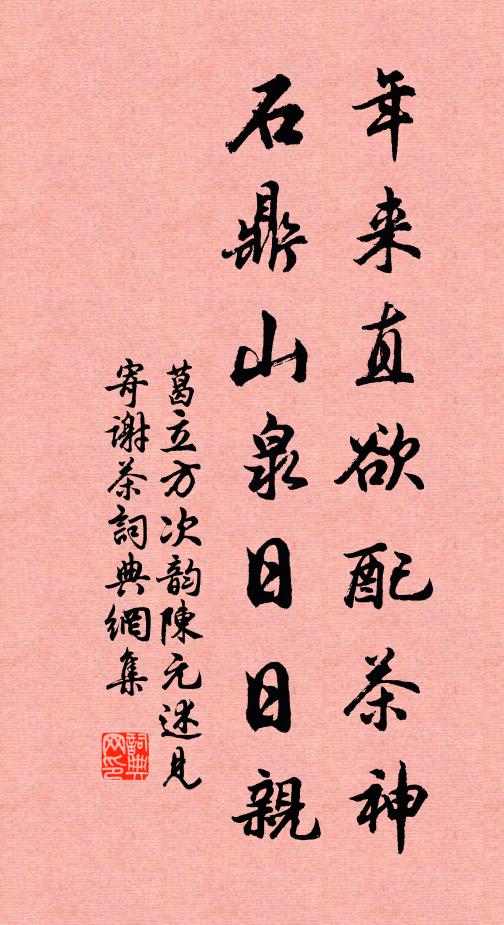 年来直欲配茶神
石鼎山泉日日親
葛立方次韵陳元述見
寄謝茶詞典網集
詞典
网印